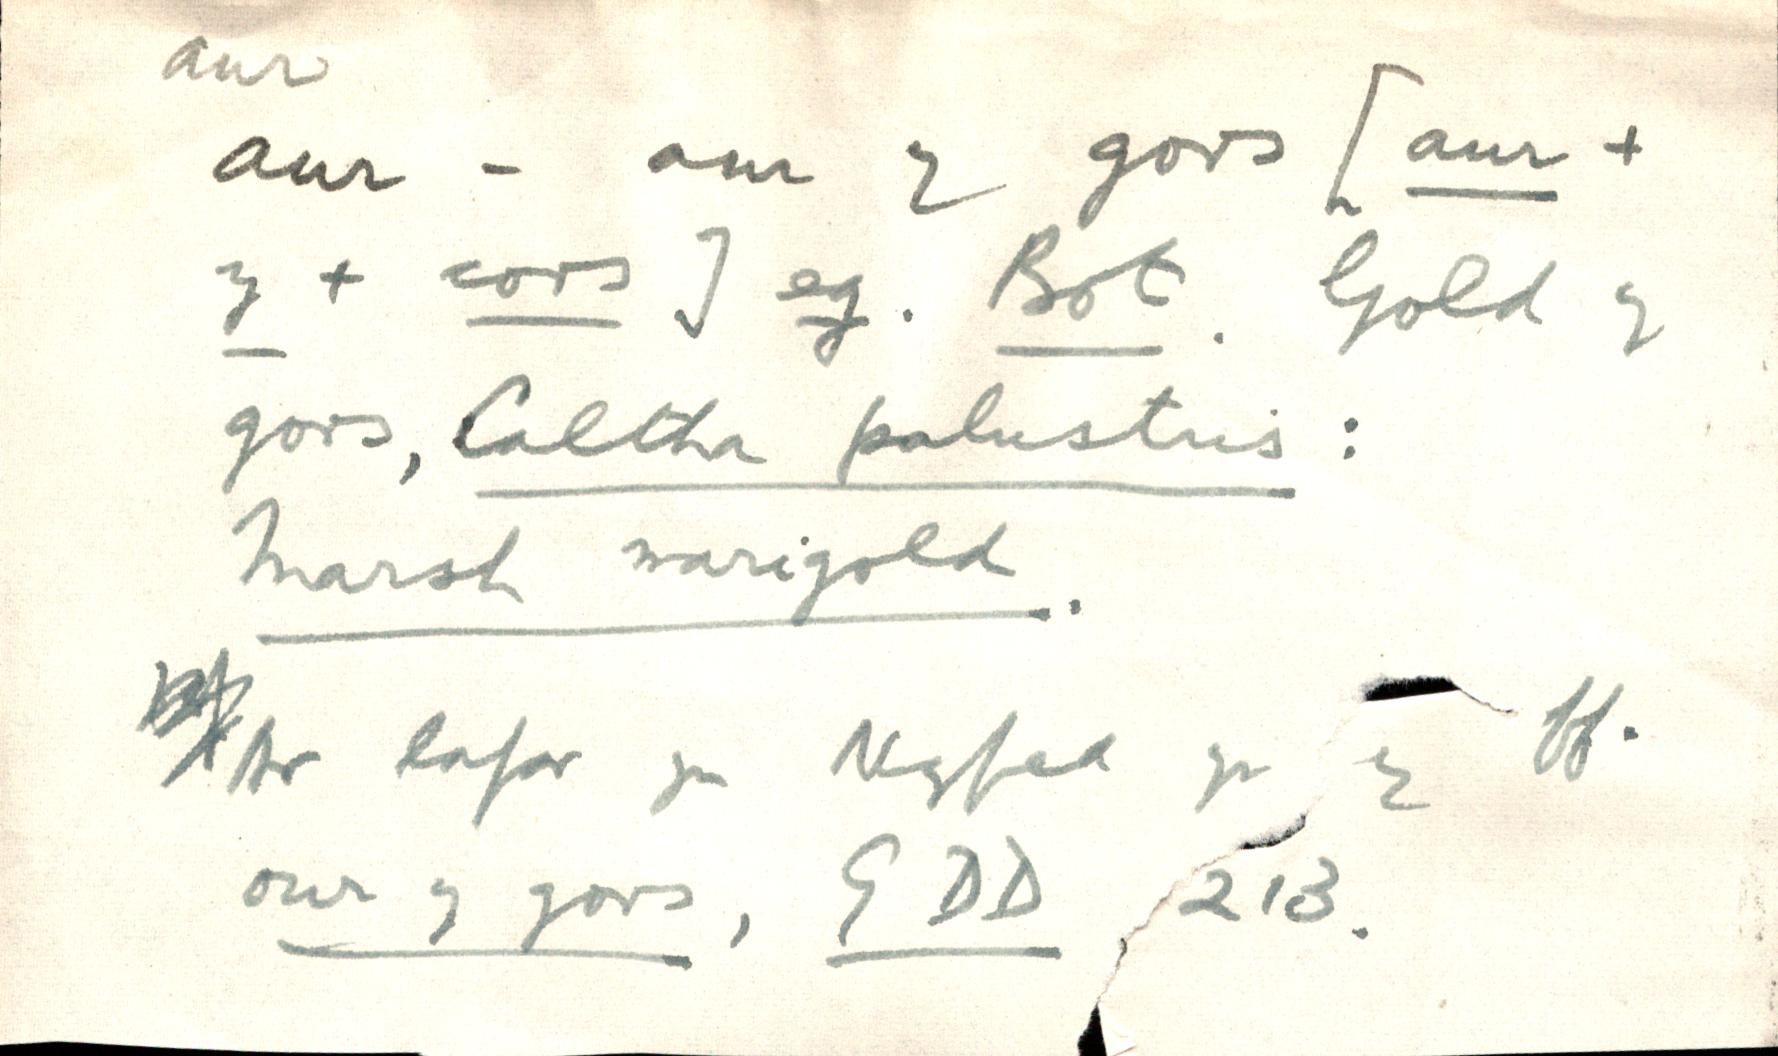 aur
aur - aur y gors [aur +
y + cors] eg. Bot. Gold y
gors, Caltha palustris:
Marsh marigold.
Ar lafar yn Nyfed yn y ff.
our y gors, GDD 213.